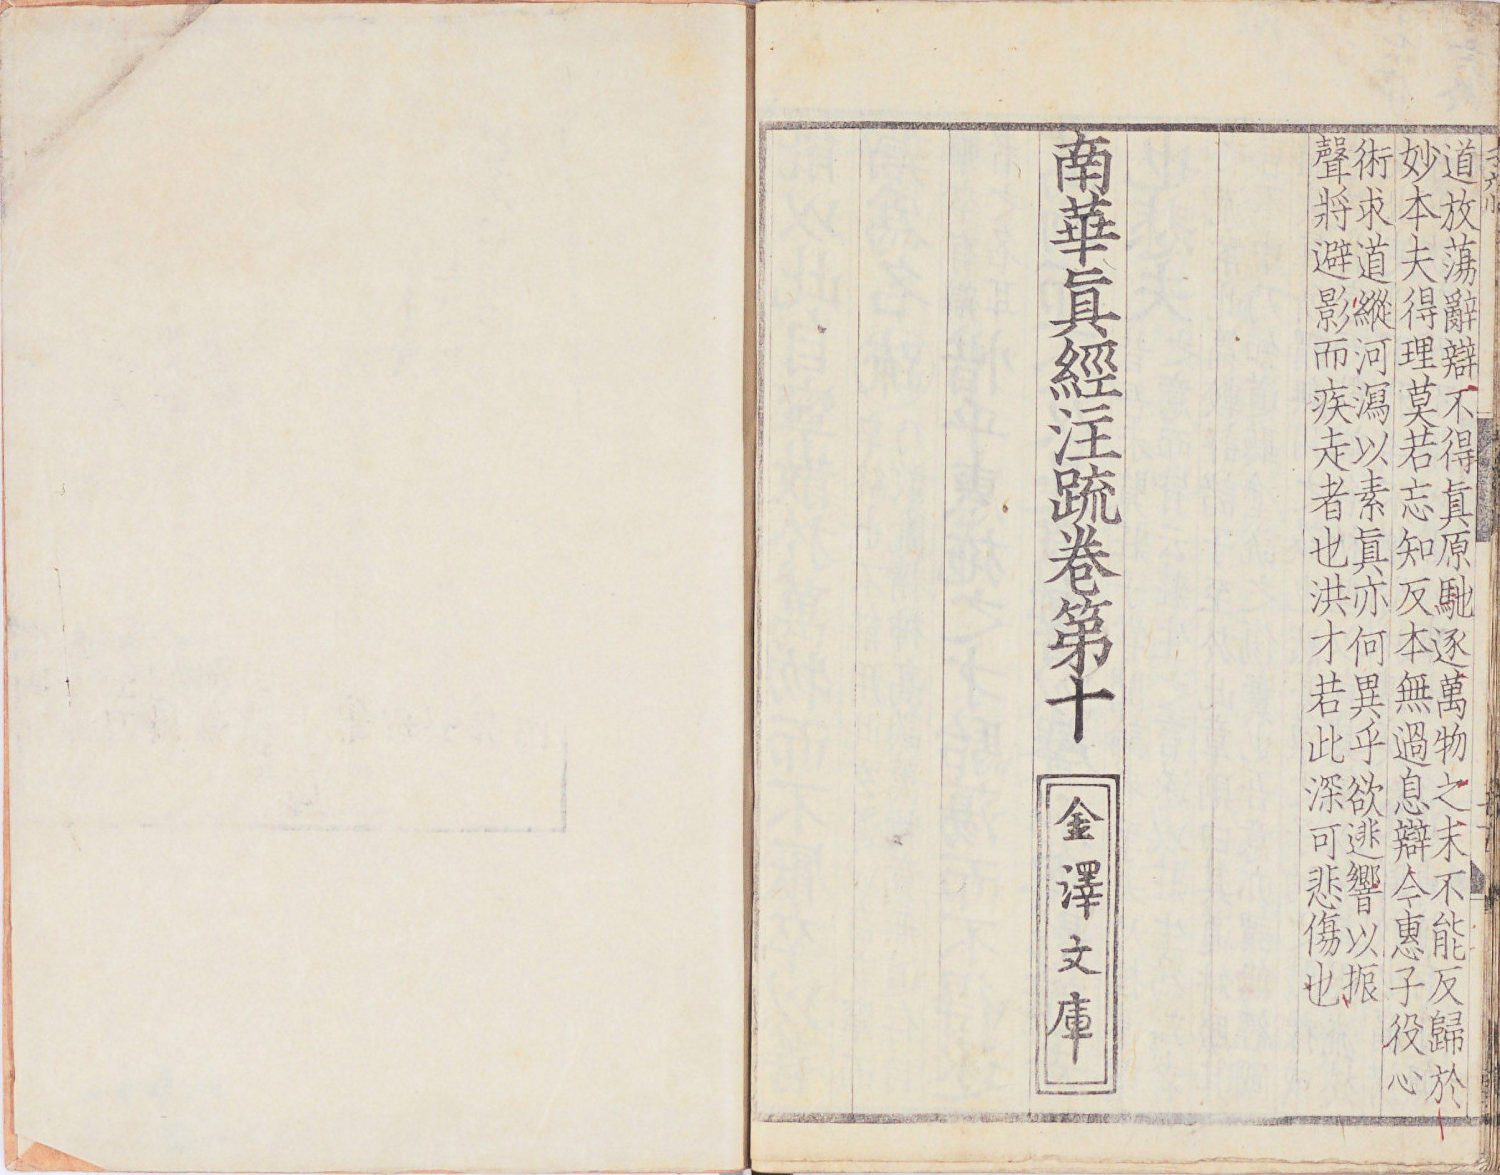 道放蕩辭辯不得眞原馳逐萬物之末不能反歸於
妙本夫得理莫若忘知反本無過息辯今惠子役心
術求道縱河瀉以索眞亦何異乎欲逃響以振
聲將避影而疾走者也洪才若此深可悲傷也
南華眞經注䟽卷第十
金澤文庫